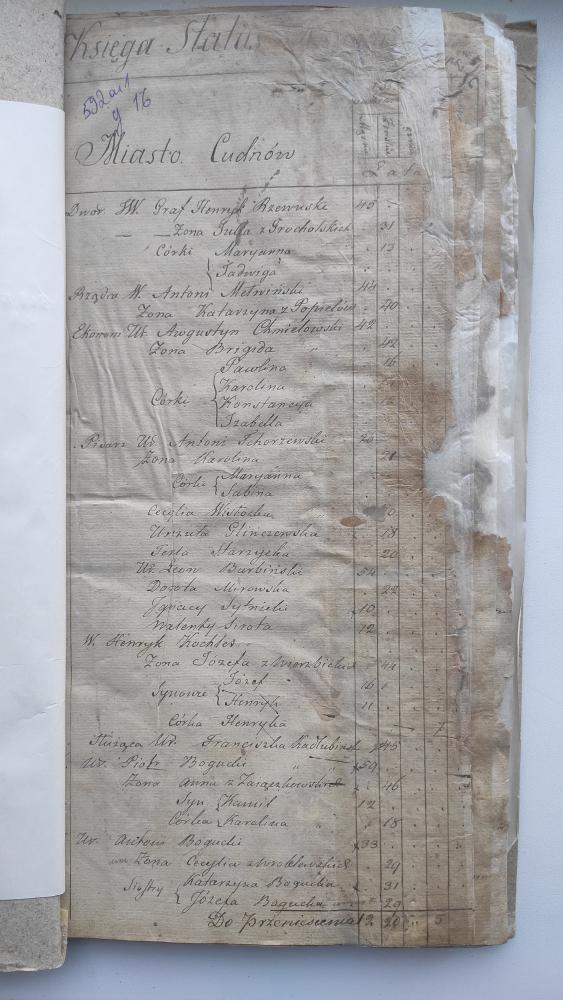 Księga Status
592 ar 1
g 16
Miasto Cudnów
Dwór. JW. Graf Henryk Rzewuski 40
Żona Julia z Grocholskich 31
Córki Maryanna 13
Jadwiga
Rządca W. Antoni 44
Żona Katarzyna z Popielów 40
Ekonom Ur. Awgustyn Chmielowski 42
Żona Brigida 42
Pawlina 16
Karolina
Córki Konstancyja
Izabella
Pisarz Ur. Antoni 26
Żona Karolina 21
Córki Maryanna
Sabina
Cecylia Wisłocka
Urszula Glińczewska 18
Tekla Starzycka 20
Ur. Leon Burbiński 54
Dorota Mirowska 22
Jgnacy Sytnicki 10
Walenty Sirota 12
W. Henryk Kochler
Żona Józefa z Wierzbickich 44
Józef 16
Synowie
Henryk 11
Córka Henryka 7
Służąca Ur. Franciszka Kadłubińska 45
Ur. Piotr Bogucki 59
Żona Anna z 46
Syn Kamil 12
Córka Karolina 18
Ur. Antoni Bogucki 33
Żona Cecylia z Wroblewskich 29
Siostry Katarzyna Bogucka 31
Józefa Bogucka 29
Do przeniesienia 12 20 5